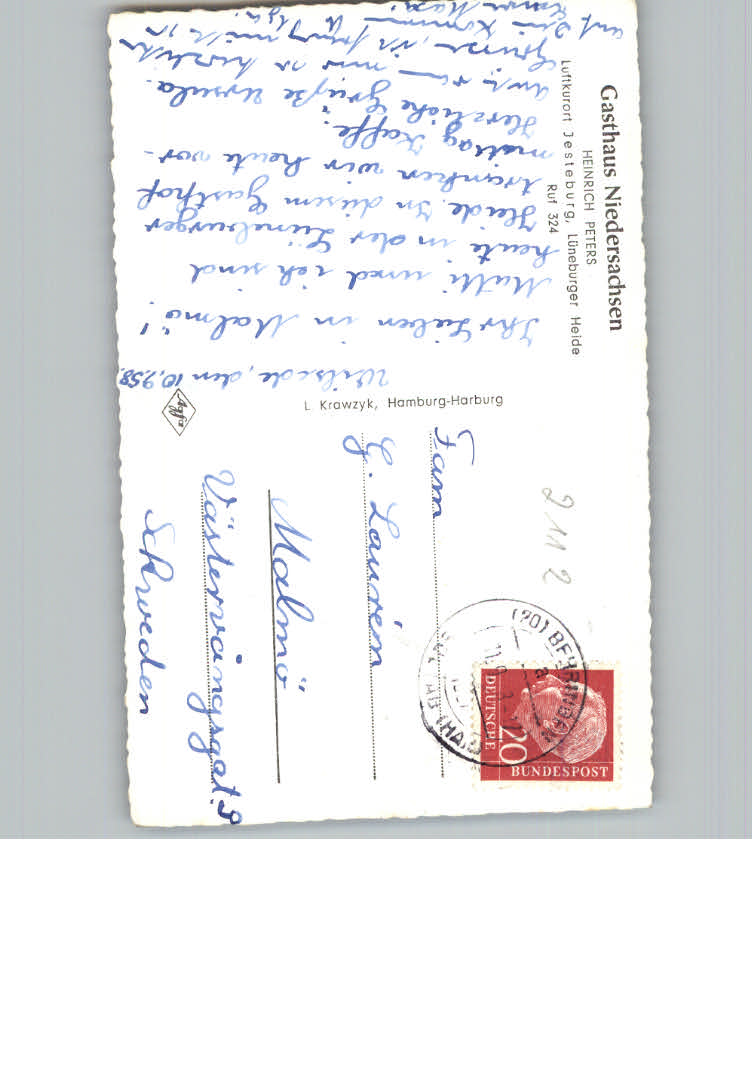 Gasthaus Niedersachsen
HEINRICH PETERS
Luftkurort Jesteburg, Lüneburger Heide
Ruf 324
Wilsede, den 10.9.58.
Ihr Lieben in Malmö!
Mutti und ich sind
heute in der Lüneburger
Heide. In diesem Gasthof
tranken wir heute vor-
mittag Kaffe.
Herzliche Grüße Ursula.
herzliche
Grüsse, ich
auf
L. Krawzyk, Hamburg-Harburg
Agfa
Fam
G. Laurén
Malmö
Västervångsgat. 9
Schweden
2112
(20)
DEUTSCHE
BUNDESPOST
20